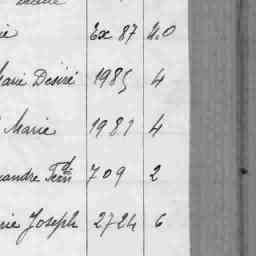 ie Ex 87 4.0
Marie Désiré 1985 4
Marie 1981 4
andre Ferd 709 2
rie Joseph 2724 6